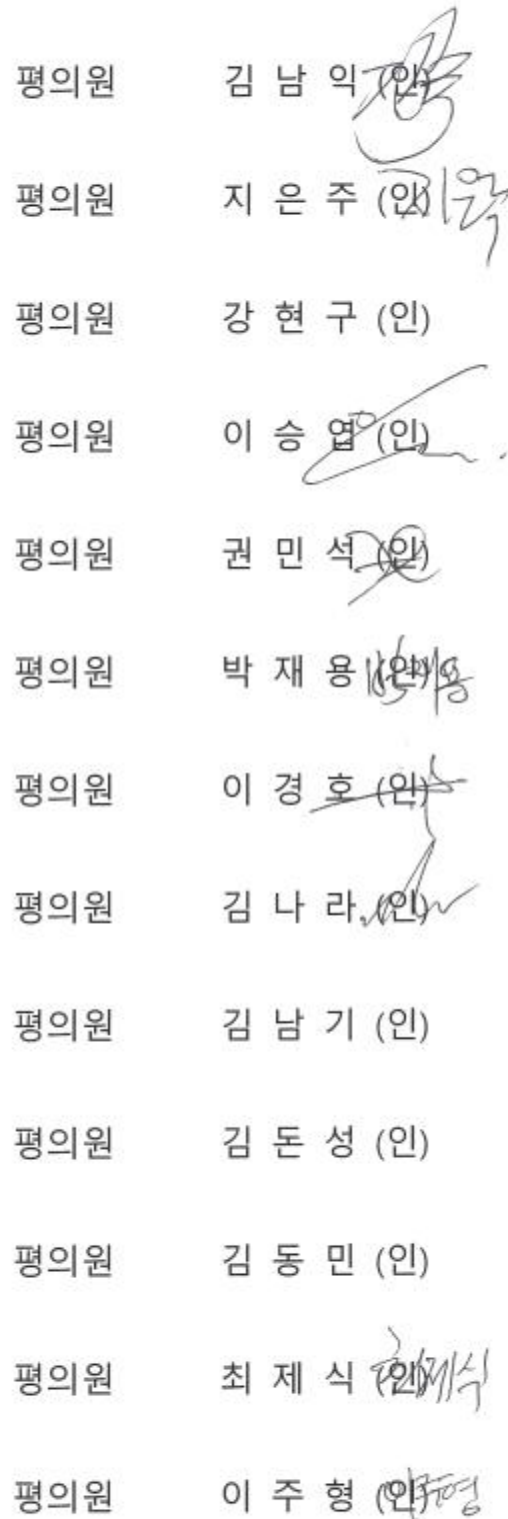 평의원 김 남 익 (인)
평의원 지 은 주 (인)
평의원 강 현 구 (인)
평의원 이 승 엽 (인)
평의원 권 민 석 (인)
평의원 박 재 용 (인) 박재용
평의원 이 경 호 (인)
평의원 김 나 라 (인)
평의원 김 남 기 (인)
평의원 김 돈 성 (인)
평의원 김 동 민 (인)
평의원 최 제 식 (인) 최제식
평의원 이 주 형 (인) 이주형